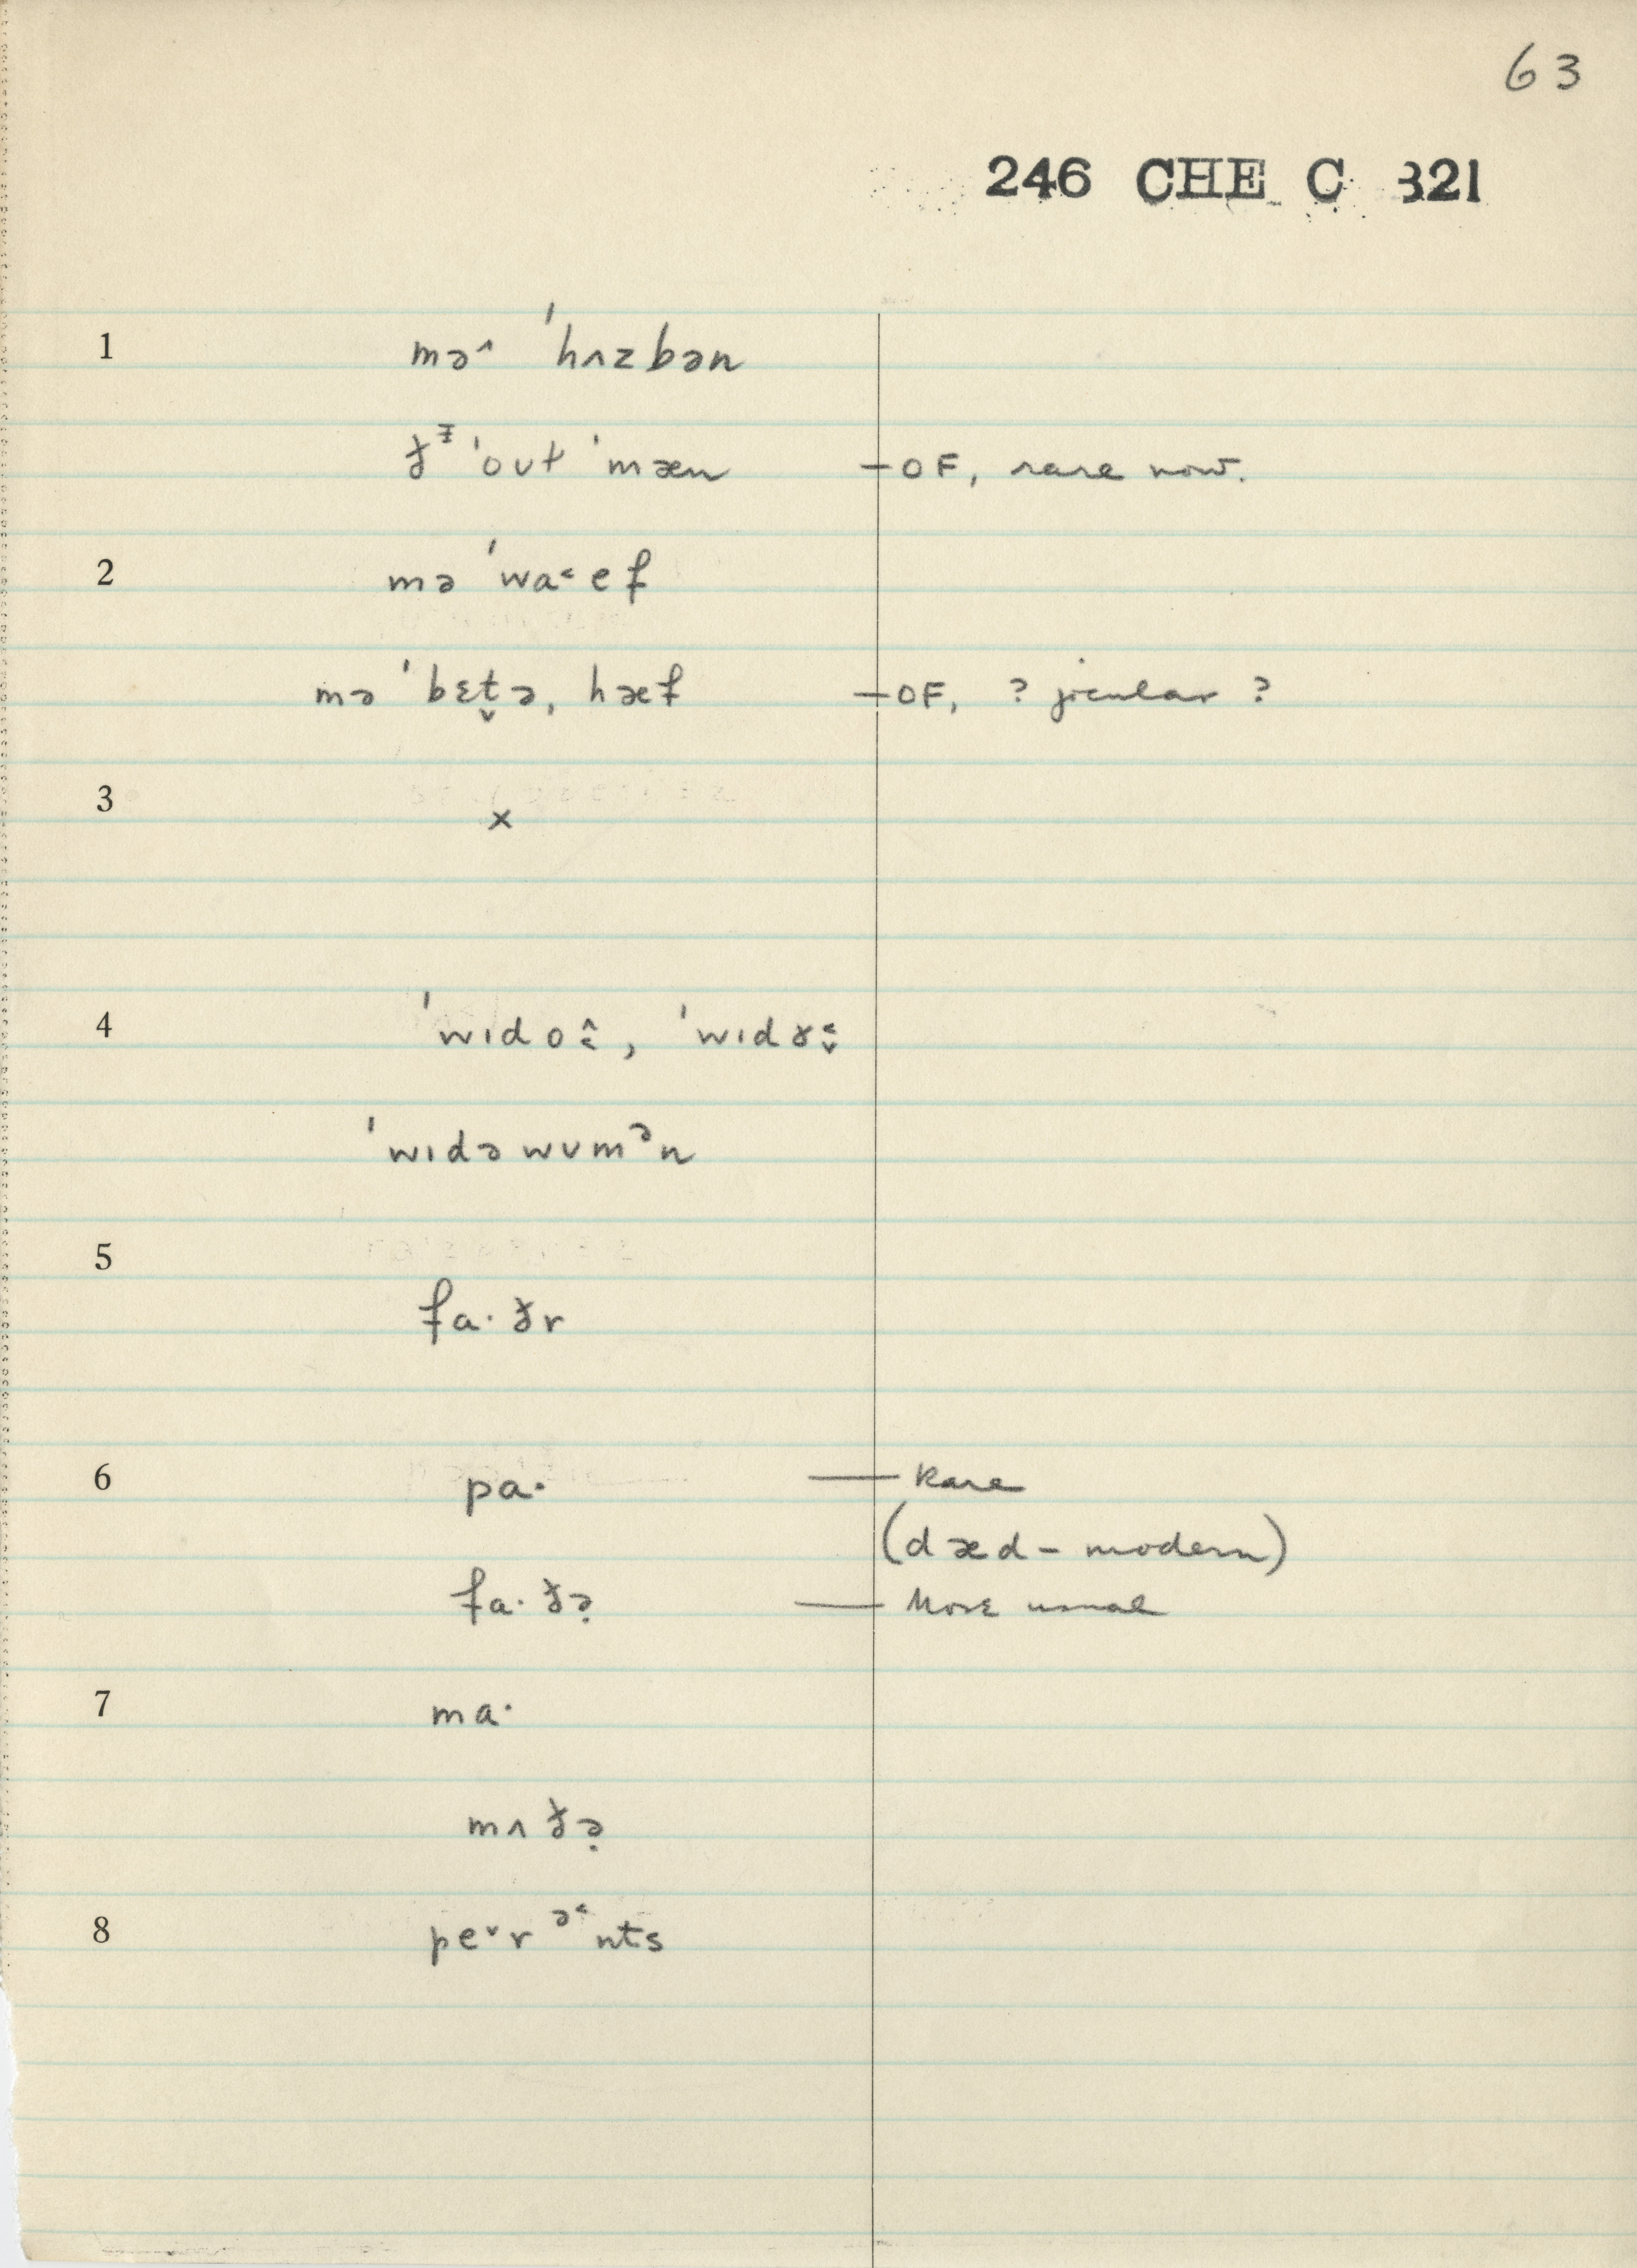 63
246 CHE C 321
1 mə˄ ˈhʌzbən
ðᵻ ˈoʊɫ ˈmæn — OF, rare now.
2 mə ˈwa˂ef
mə ˈbɛt̬ə, hæf — OF, ? jocular ?
3 ×
4 ˈwɪdo˄˂, ˈwɪdɤ˂˅
ˈwɪdəwʊmᵊn
5 fa·ðr
6 pa· — Rare
(dæd – modern)
fa·ðə̣ — More usual
7 ma·
mʌðə̣
8 pe˅rᵊ˂nts